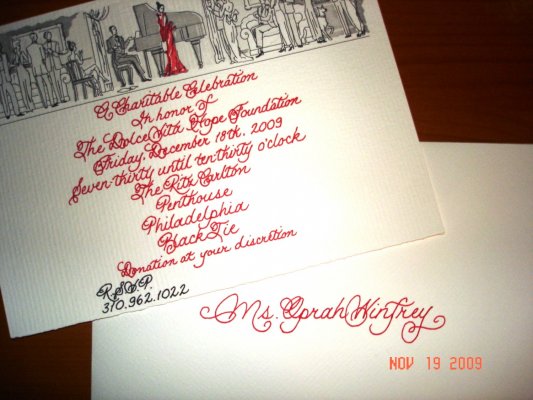 A Charitable Celebration
In honor of
The Dolce Vita Hope Foundation
Friday, December 18th, 2009
Seven-thirty until ten thirty o'clock
The Ritz Carlton
Penthouse
Philadelphia
Black Tie
Donation at your discretion
R.S.V.P.
310.962.1022
Ms. Oprah Winfrey
NOV 19 2009